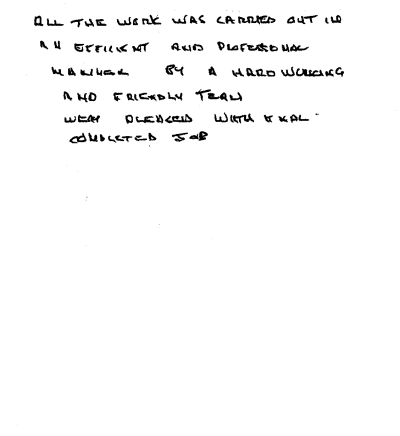 ALL THE WORK WAS CARRIED OUT IN
AN EFFICIENT AND PROFESSIONAL
MANNER BY A HARDWORKING
AND FRIENDLY TEAM
VERY PLEASED WITH FINAL
COMPLETED JOB